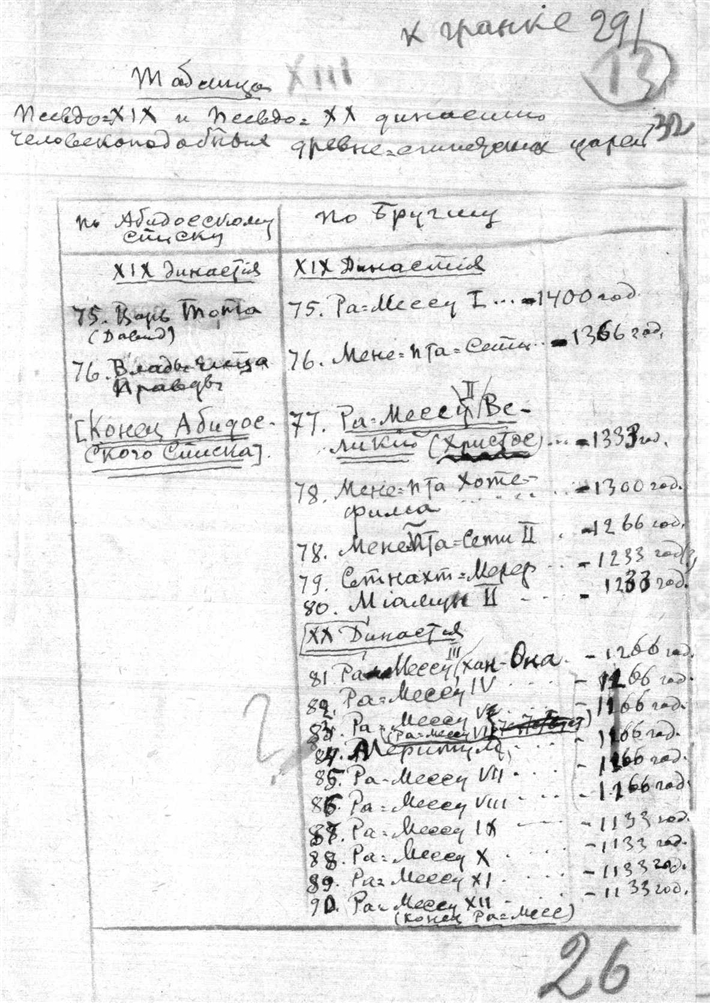 к гранке 29
13
Таблица XIII
Псевдо=XIX и Псевдо=XX династии
человекоподобныя древне=египетских царей 32
по Абидосскому
списку
по Бругшу
XIX Династія
XIX Династія
75. Царь Тота
(Давид)
75. Ра=Мессу I ... -1400 год
76. Владычица
Правды
76. Мене=Пта=Сети -1366 год.
[Конец Абидос-
ского Списка].
77. Ра=Мессу II Ве-
ликий (Христос) ... -1333 год.
78. Мене=Пта Хоте-
фима ... -1300 год.
78. МенеПта=Сети II . -1266 год.
79. Сетнахт=Мерер - -1233 год
80. Міамун II - - - 1233 год.
XX Династія
81 Ра=Мессу III хан-Она - 1266 год.
82. Ра=Мессу IV - 1166 год.
83. Ра=Мессу - 1166 год.
(Ра=Мессу VI
84. Меритум - 1166 год.
85. Ра=Мессу VII - 1166 год.
86. Ра=Мессу VIII - 1166 год.
87. Ра=Мессу IX - 1133 год.
88. Ра=Мессу X - 1133 год.
89. Ра=Мессу XI - 1133 год.
90. Ра=Мессу XII - 1133 год.
(Конец Ра=Месс)
?
26